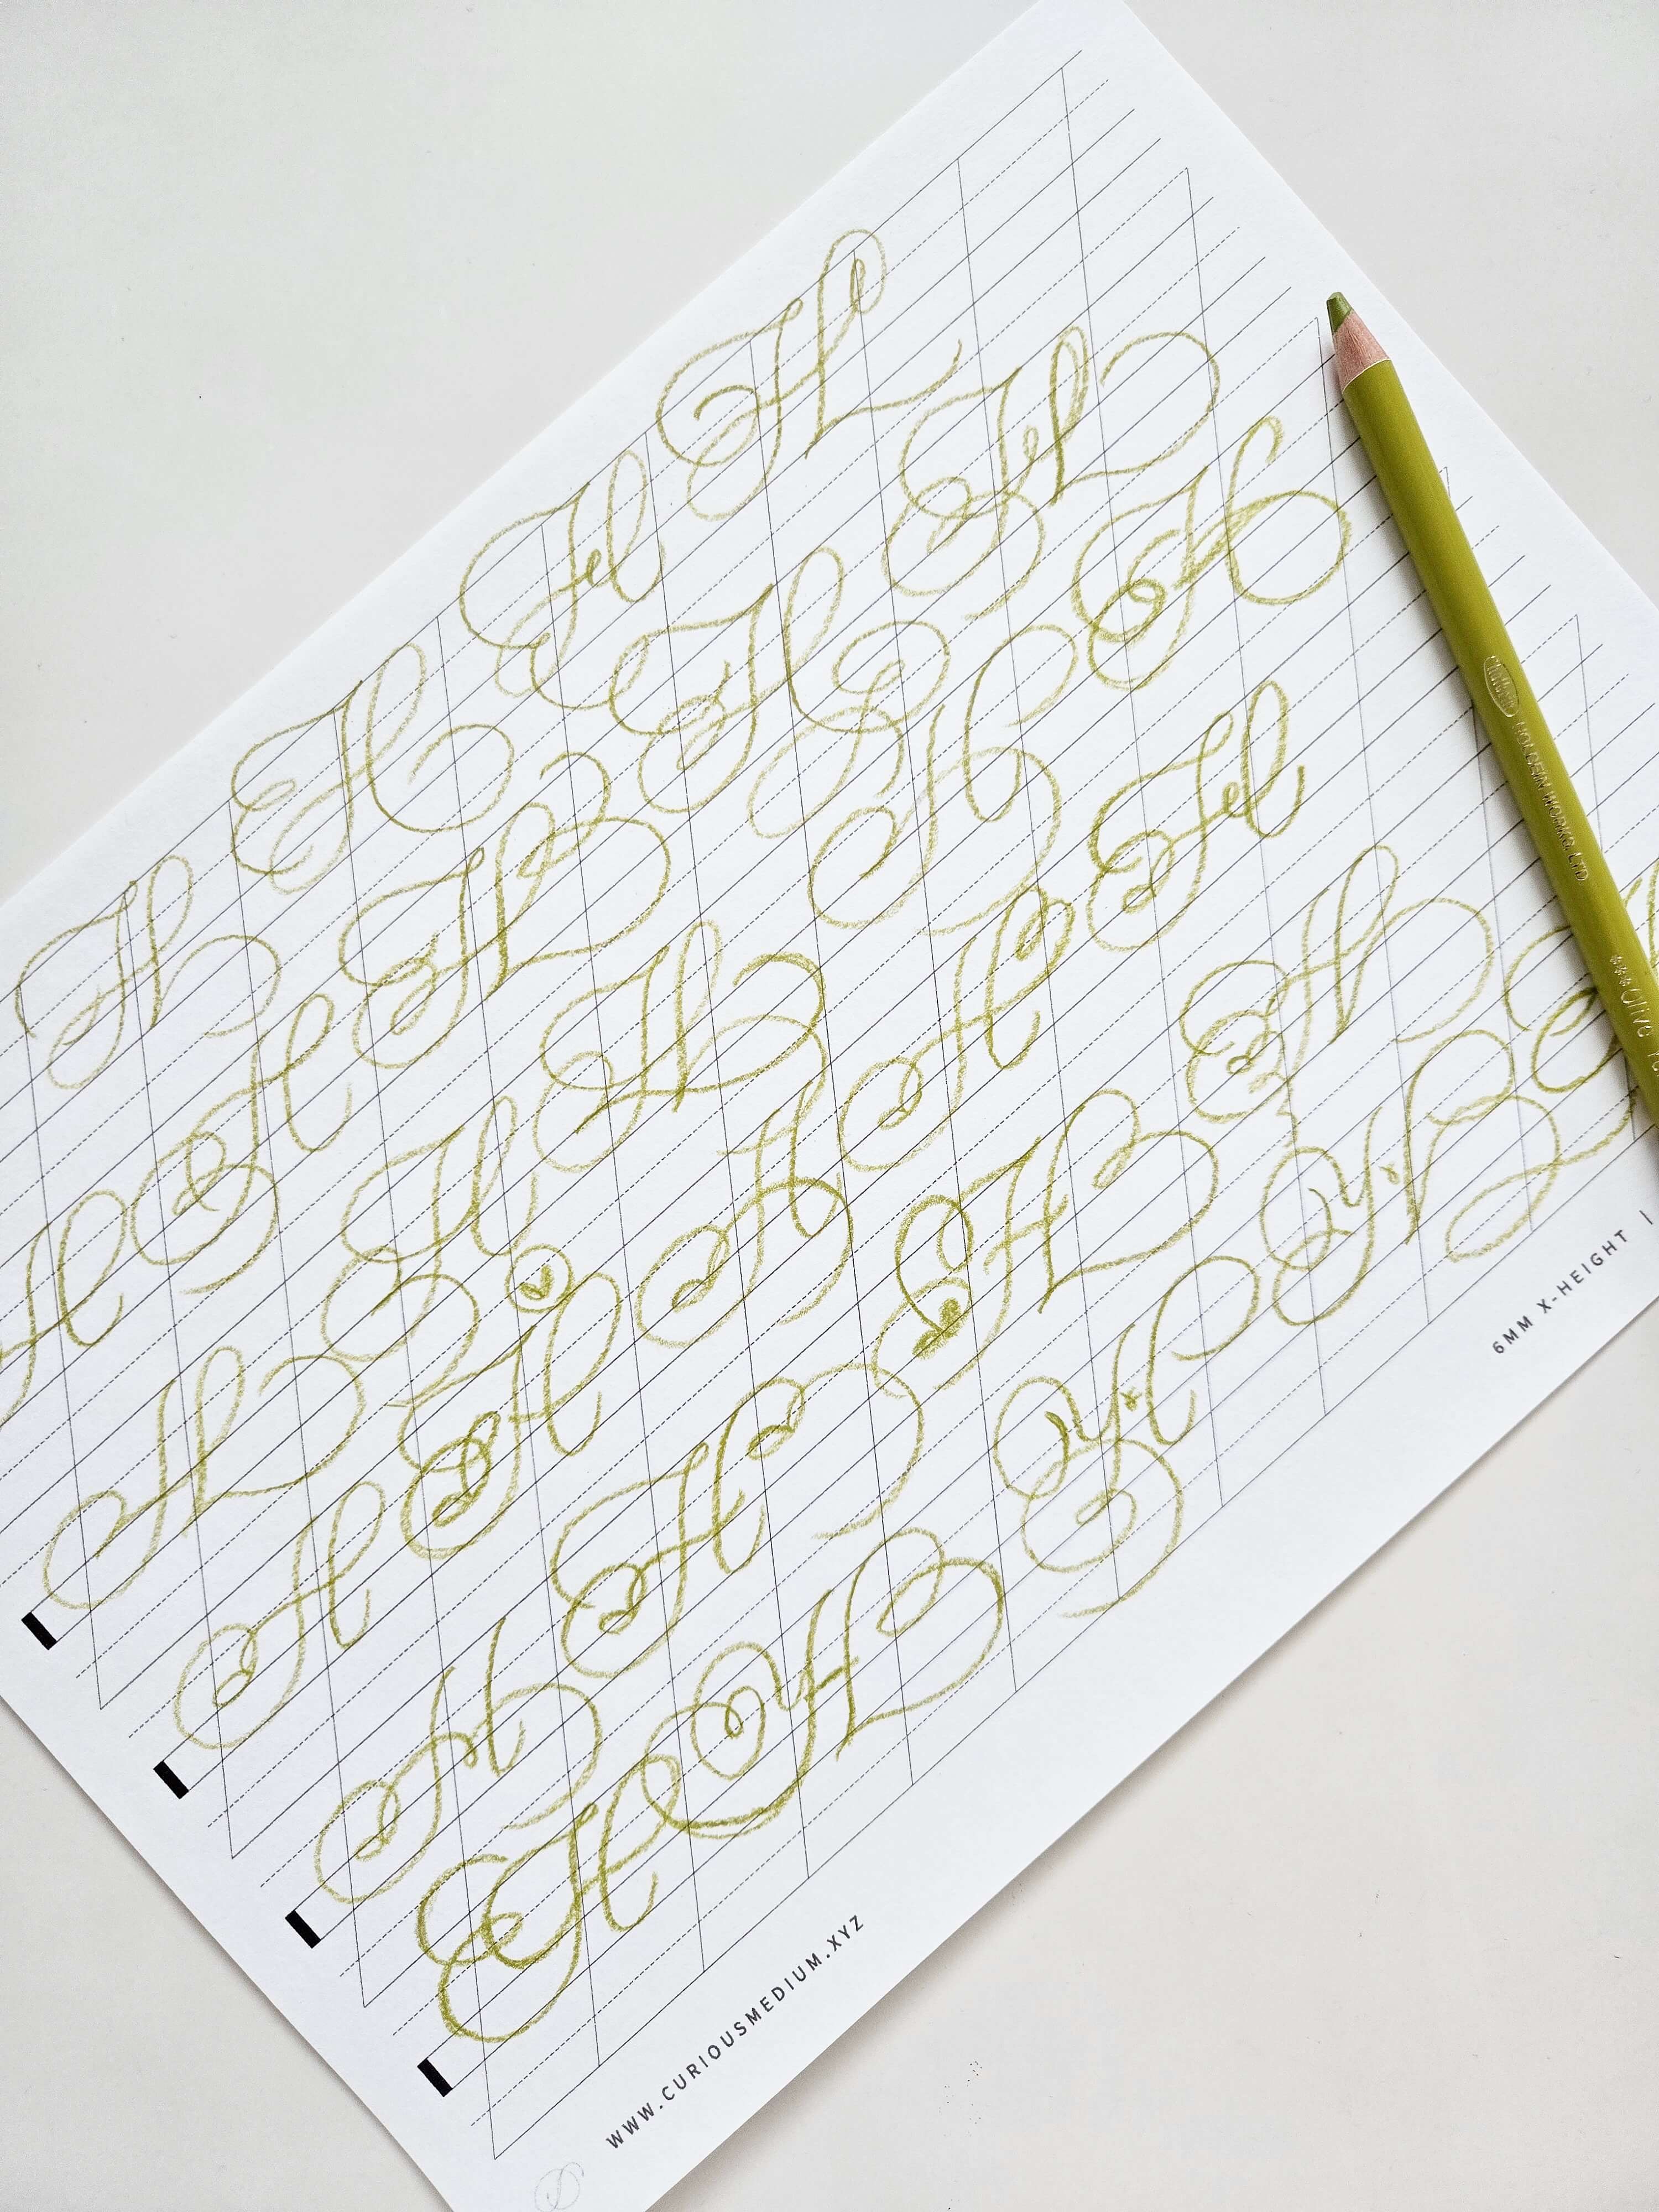 H H H H
H H H H H
H H H H H
H H H H H
H H H H
H H H H
6MM X-HEIGHT |
WWW.CURIOUSMEDIUM.XYZ
HOLBEIN WORKS, LTD
Olive